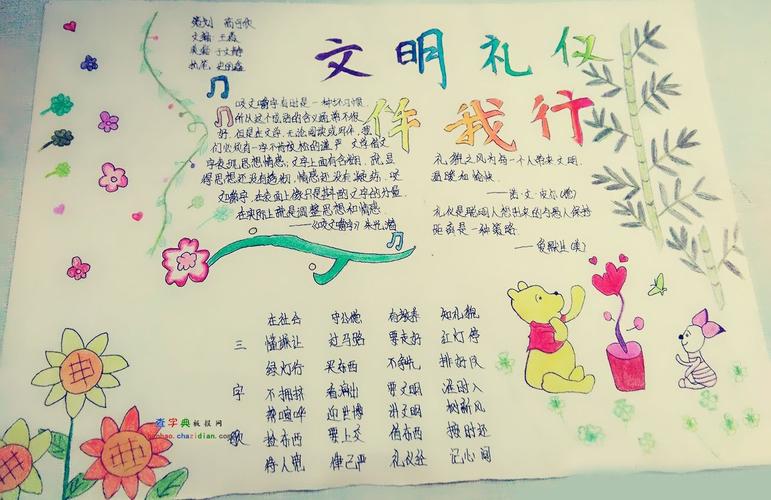 策划
文编 王森
美编 于文静
执笔
文明礼仪
伴我行
咬文嚼字有时是一种坏习惯,
所以这个成语的含义通常不很
好。但是在文学,无论阅读或写作,我
们必须有一字不肯放松的谨严。文学借文
字表现思想情感;文字上面有含糊,就显
得思想还没有透彻,情感还没有凝练。咬
文嚼字,在表面上像只是斟酌文字的分量,
在实际上就是调整思想和情感。
——《咬文嚼字》朱光潜
礼貌之风为每一个人带来文明、
温暖和愉快。
——诺·文·皮尔(德)
礼仪是聪明人想出来的与愚人保持
距离的一种策略。
——爱默生(美)
三字歌
在社会 守公德 有教养 知礼貌
懂谦让 过马路 要走好 红灯停
绿灯行 买东西 不争先 排好队
不拥挤 看演出 要文明 准时入
辣喧哗 迎世博 讲文明 树新风
捡东西 要上交 借东西 按时还
待人宽 律己严 礼仪经 记心间
查字典 板报网
banbao.chazidian.com